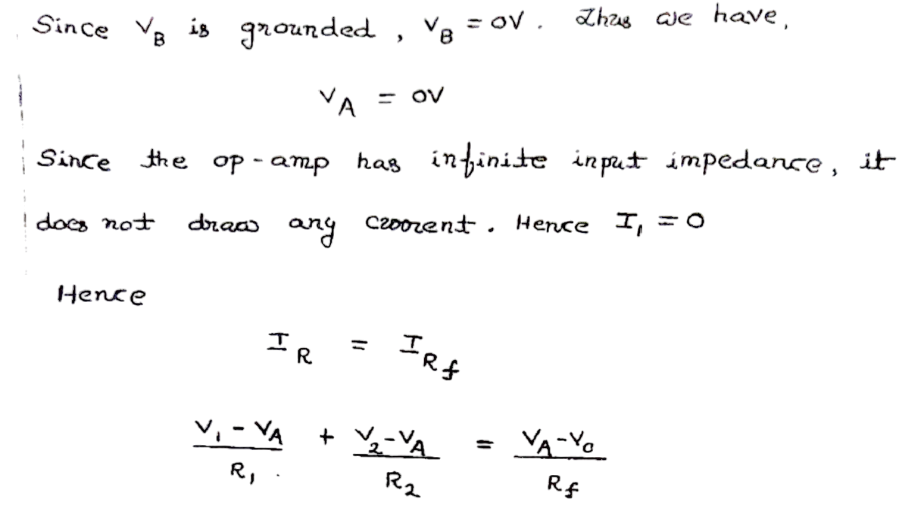 Since V_B is grounded, V_B = 0V. Thus we have,
V_A = 0V
Since the op-amp has infinite input impedance, it
does not draw any current. Hence I_1 = 0
Hence
I_R = I_Rf
(V_1 - V_A)/R_1 + (V_2 - V_A)/R_2 = (V_A - V_0)/R_f